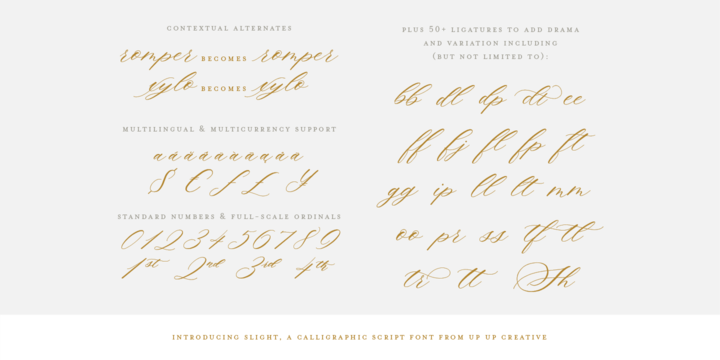 CONTEXTUAL ALTERNATES
romper BECOMES romper
xylo BECOMES xylo
MULTILINGUAL & MULTICURRENCY SUPPORT
STANDARD NUMBERS & FULL-SCALE ORDINALS
0 1 2 3 4 5 6 7 8 9
1st 2nd 3rd 4th
PLUS 50+ LIGATURES TO ADD DRAMA
AND VARIATION INCLUDING
(BUT NOT LIMITED TO):
bb dl dp dt ee
ff fj fl fp ft
gg ip ll lt mm
oo pr ss tf tt
tr tt Th
INTRODUCING SLIGHT, A CALLIGRAPHIC SCRIPT FONT FROM UP UP CREATIVE